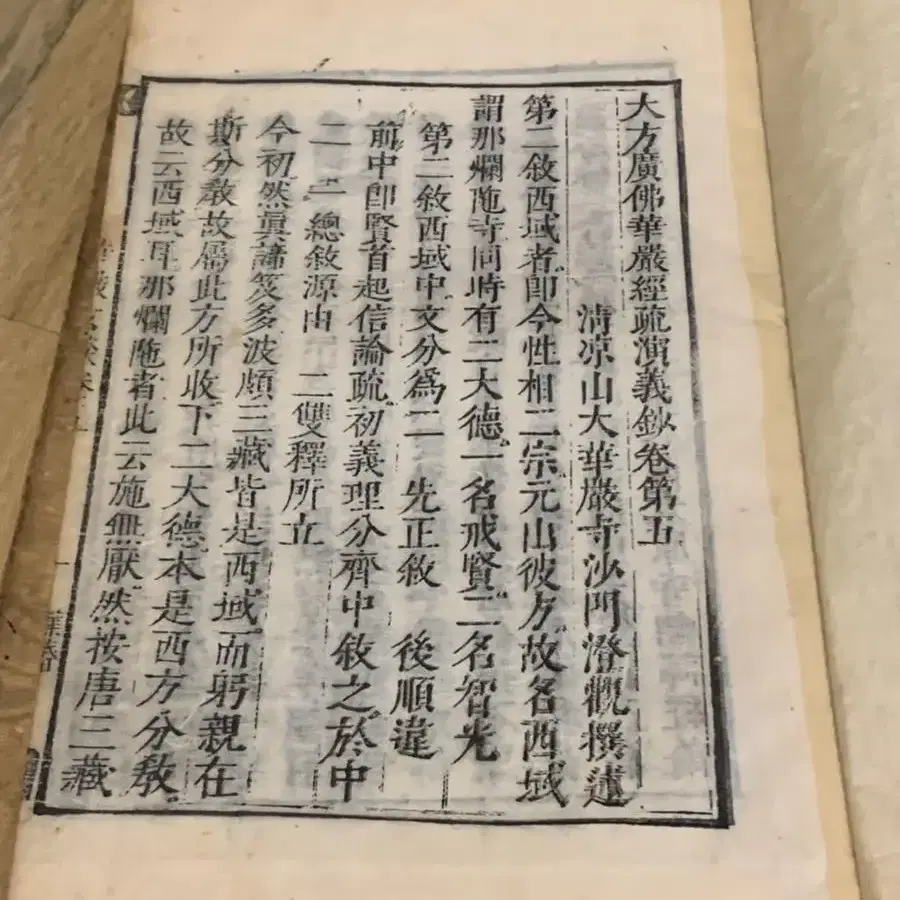 大方廣佛華嚴經疏演義鈔卷第五
淸凉山大華嚴寺沙門澄觀撰述
第二敘西域者卽今性相二宗元出彼方故名西域
謂那爛陁寺同時有二大德一名戒賢二名智光
第二敘西域中文分爲二 先正敘 後順違
前中卽賢首起信論疏初義理分齊中敘之於中
二 一總敘源由 二雙釋所立
今初然眞諦笈多波頗三藏皆是西域而躬親在
斯分敎故屬此方所收下二大德本是西方分敎
故云西域耳那爛陁者此云施無厭然按唐三藏